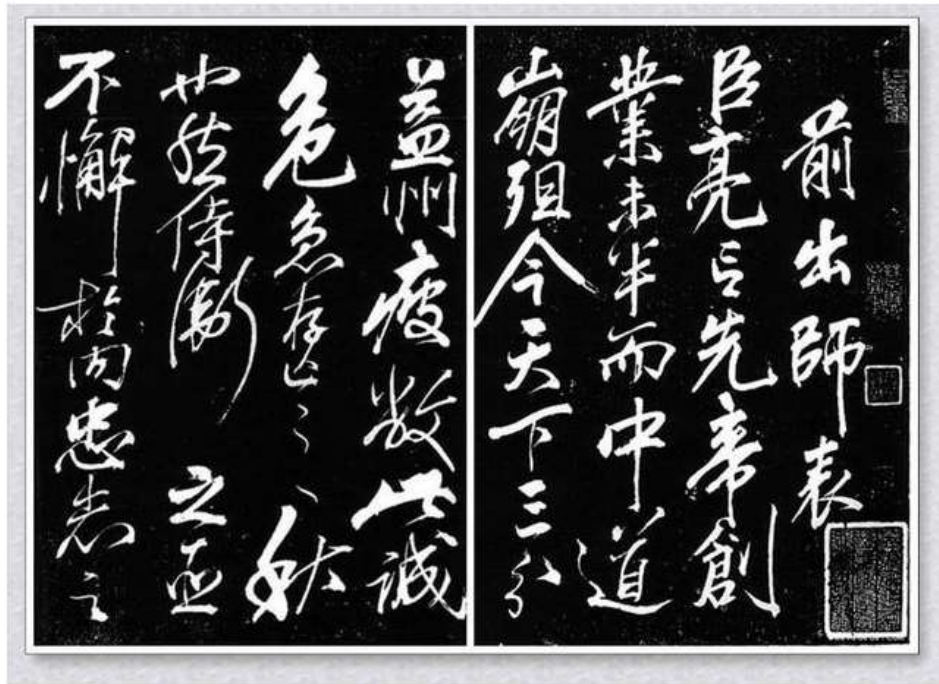 前出師表
臣亮言先帝創
業未半而中道
崩殂今天下三分
益州疲敝此誠
危急存亡之秋
也然侍衛之臣
不懈於内忠志之